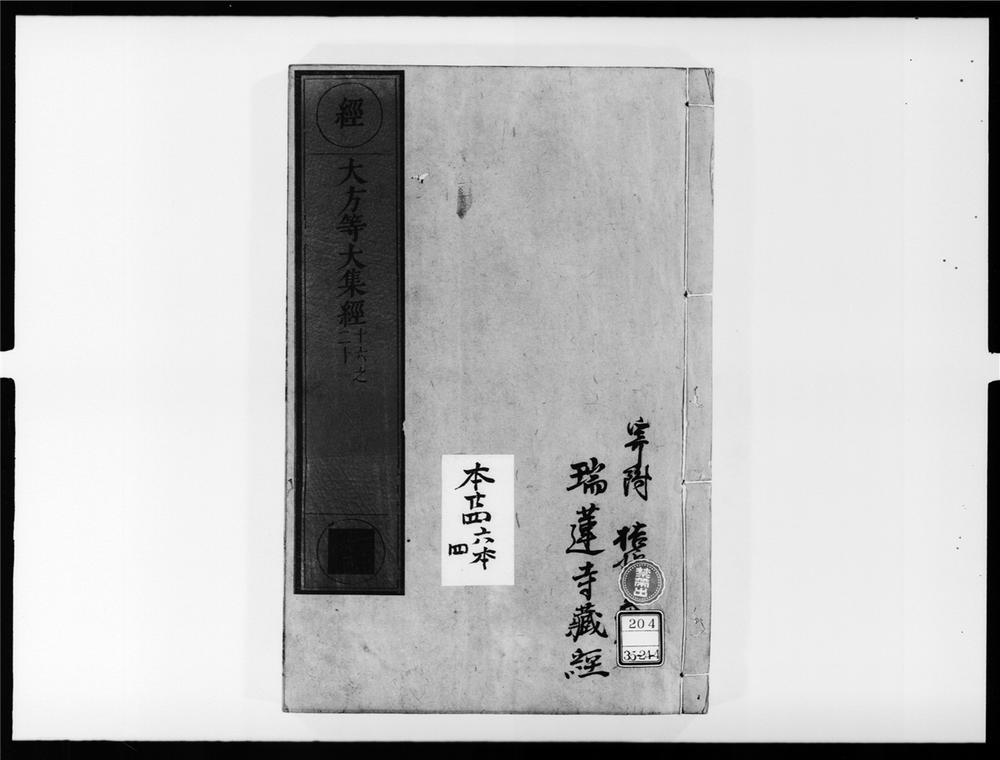 寄附
瑞蓮寺藏經
禁帶出
204
35-24-4
本 六本
四
經
大方等大集經十六之
二十